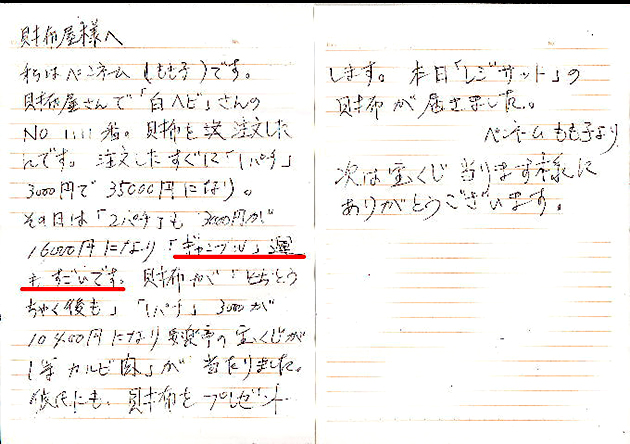 財布屋様へ
私はペンネーム(もも子)です。
財布屋さんで「白ヘビ」さんの
NO 1.11番。財布を 注文した
んです。注文したすぐに「1パチ」
3000円で 35000円になり。
その日は「2パチ」も 3000円が
16000円になり「ギャンブル」運
も すごいです。財布が「とうとう
ちゃく後も」「1パチ」3000が
10400円になり の宝くじが
1等 カルビ肉」が 当たりました。
彼氏にも、財布をプレゼント
します。本日「レジサット」の
財布が届きました。
ペンネーム もも子より
次は宝くじ当ります様に
ありがとうございます。